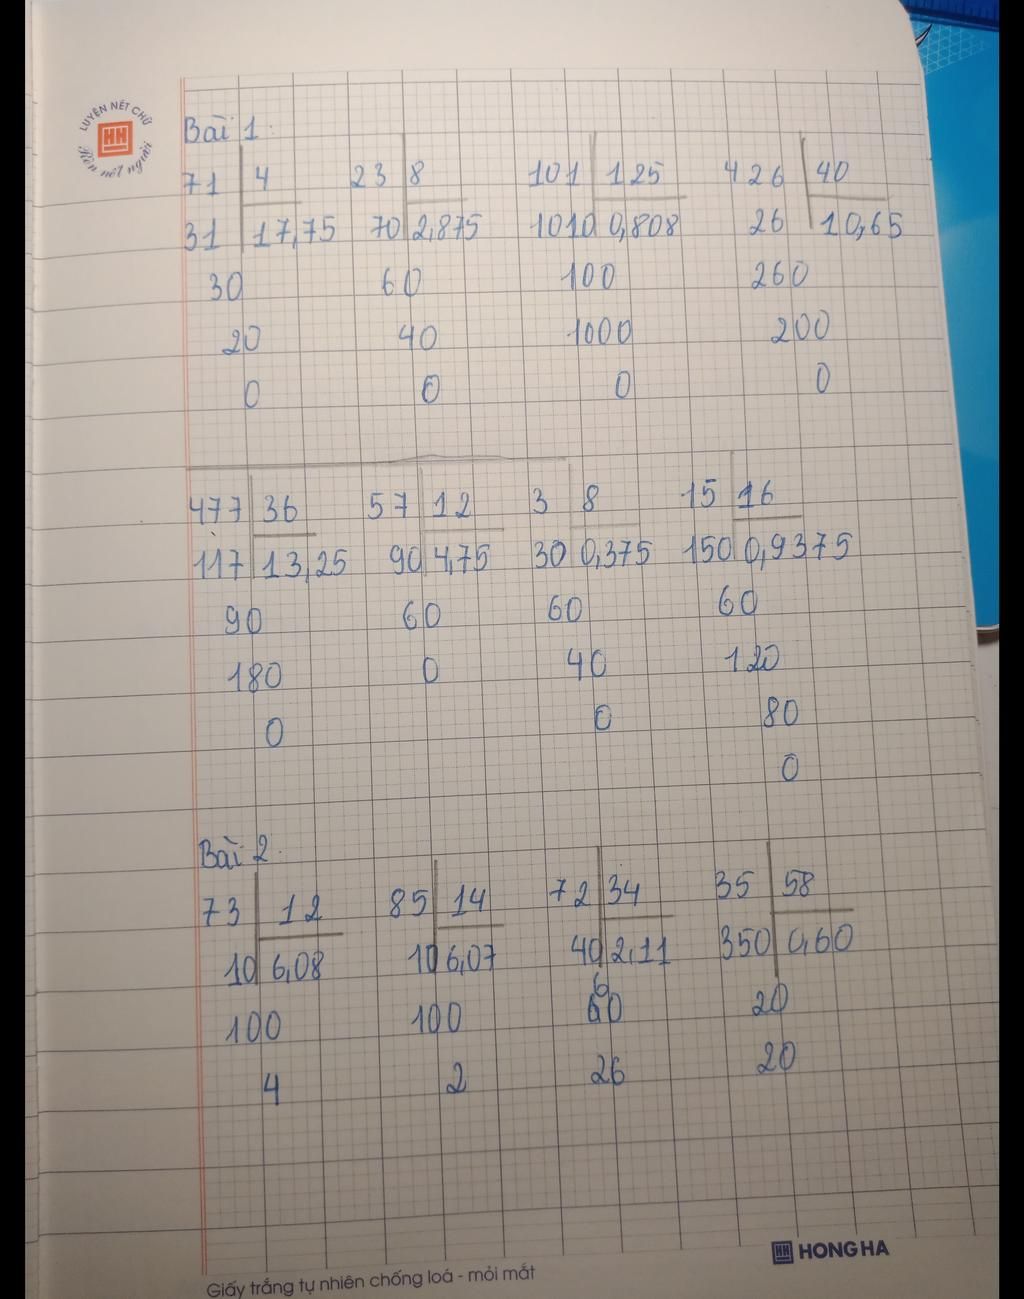 LUYỆN NÉT CHỮ
HH
Rèn nết người
Bài 1.
71 4 23 8 101 125 426 40
31 17,75 70 2,875 1010 0,808 26 10,65
30 60 100 260
20 40 1000 200
0 0 0 0
477 36 57 12 3 8 15 16
117 13,25 90 4,75 30 0,375 150 0,9375
90 60 60 60
180 0 40 120
0 0 80
0
Bài 2.
73 12 85 14 72 34 35 58
10 6,08 10 6,07 40 2,11 350 0,60
100 100 60 20
4 2 26 20
HH HONG HA
Giấy trắng tự nhiên chống loá - mỏi mắt